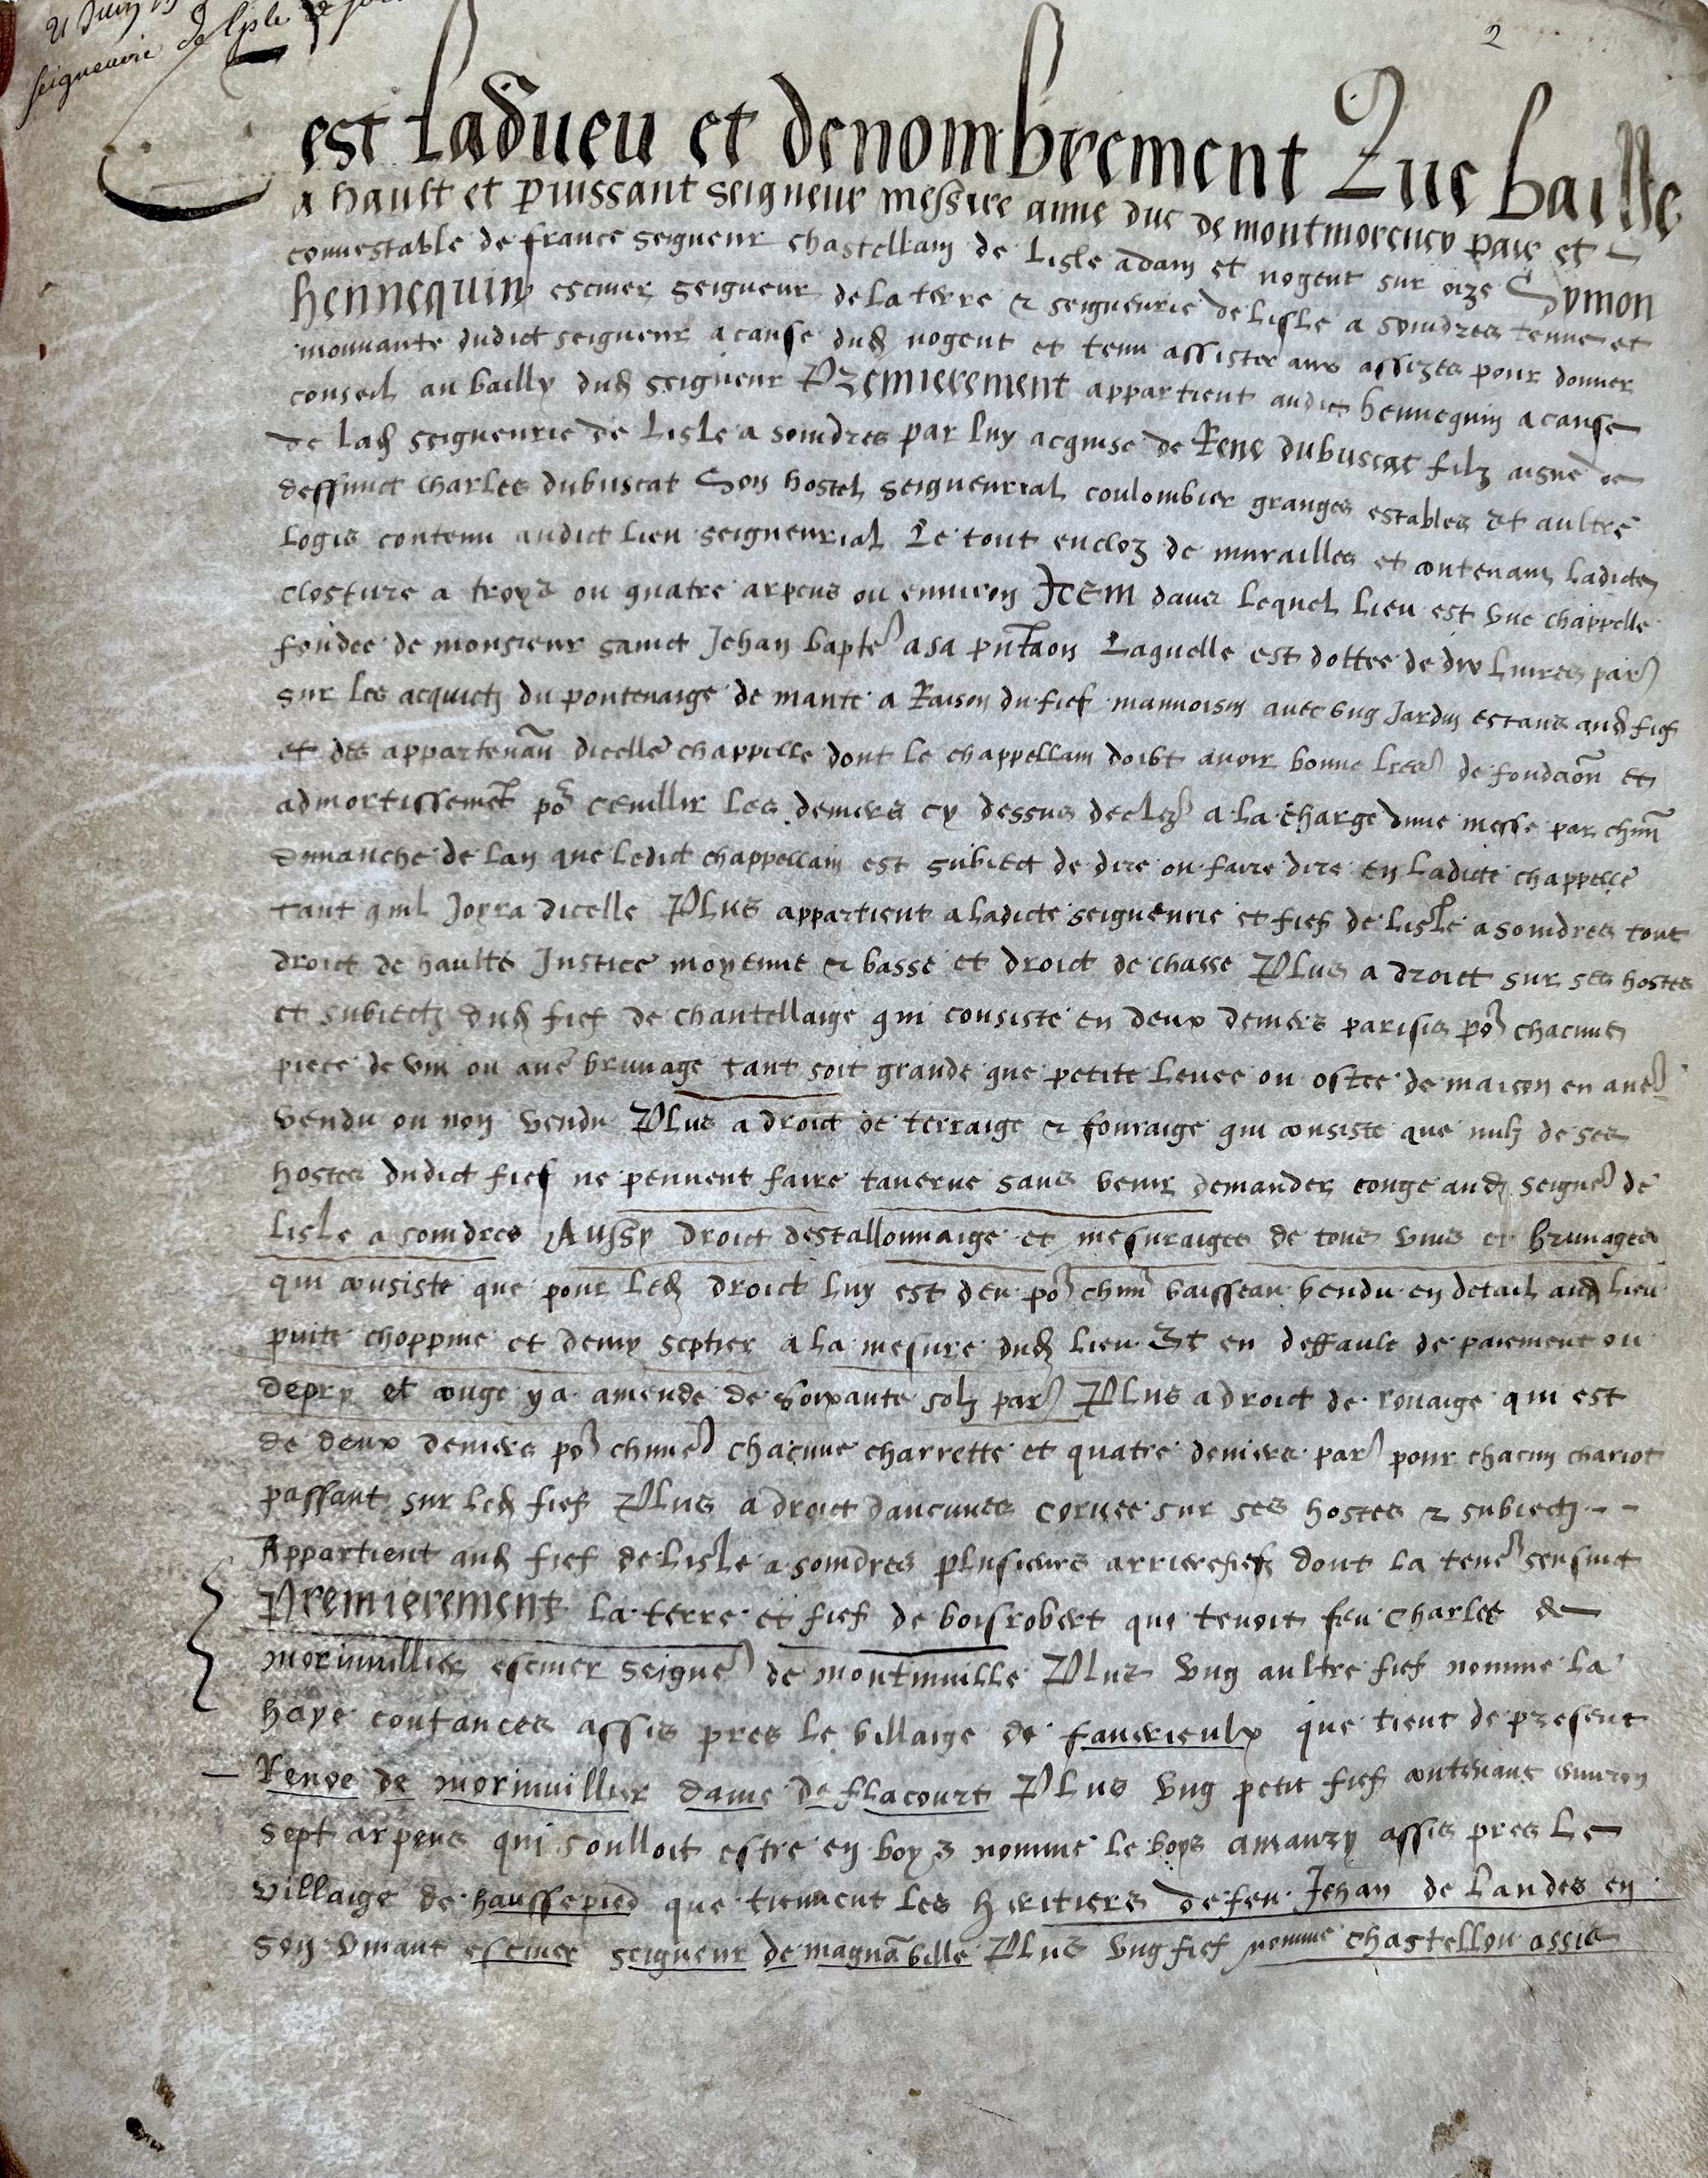 21 Juin
seigneurie de lisle
2
est ladveu et denombrement Que baille
a hault et Puissant seigneur messire anne duc de montmorency pair et
connestable de france seigneur chastellain de Lisle adam et nogent sur oize Symon
hennequin escuier seigneur de la terre & seigneurie de Lisle a soindres tenue et
mouuante dudict seigneur a cause dud nogent et tenu assister aux assizes pour donner
conseil au bailly dud seigneur Premierement appartient audict hennequin a cause
de lad seigneurie de Lisle a soindres par luy acquise de Rene dubuscat filz aisne de
deffunct charles dubuscat Son hostel seigneurial coulombier granges estables et aultre
logis contenu audict lieu seigneurial Le tout encloz de murailles et contenant ladicte
closture a troys ou quatre arpens ou enuiron Item dans lequel lieu est vne chappelle
fondee de monsieur sainct Jehan bapte a sa pntaon Laquelle est dottee de dix liures par
sur les acquictz du pontenaige de mante a Raison du fief mannoisin auec vng Jardin estans aud fief
et des appartenan dicelle chappelle dont le chappellain doibt auoir bonne lres de fondaon et
admortissemet po ceuillir les deniers cy dessus declez a la charge dune messe par chun
dimanche de lan que ledict chappellain est subiect de dire ou faire dire en ladicte chappelle
tant quil Joyra dicelle Plus appartient a ladicte seigneurie et fief de lisle a soindres tout
droict de haulte Justice moyenne & basse et droict de chasse Plus a droict sur ses hostes
et subiectz dud fief de chantellaige qui consiste en deux deniers parisis po chacune
piece de vin ou aue bruuage tant soit grande que petite leuee ou ostee de maison en aue
vendu ou non vendu Plus a droict de terraige & fouraige qui consiste que nulz de ses
hostes dudict fief ne peuuent faire tauerne sans venir demander conge aud seigne de
Lisle a soindres Aussy droict destallonnaige et mesuraiges de tous vins et bruuages
qui consiste que pour led droict luy est deu po chun vaisseau vendu en detail aud lieu
pinte choppine et demy septier a la mesure dud lieu Et en deffault de paiement ou
depry et conge y a amende de soixante solz par Plus a droict de rouaige qui est
de deux deniers po chune chacune charrette et quatre deniers par pour chacun chariot
passant sur led fief Plus a droict daucunes coruee sur ses hostes & subiectz
Appartient aud fief de Lisle a soindres plusieurs arrierefiefz dont la tene sensuict
Premierement la terre et fief de boisrobert que tenoit feu Charles de
morinuillier escuier seigne de montinuille Plus vng aultre fief nomme la
haye coutances assis pres le villaige de fauerieulx que tient de present
Renee de morinuillier dame de flacourt Plus vng petit fief contenant enuiron
sept arpens qui soulloit estre en boys nomme le boys amaury assis pres le
villaige de haussepied que tiennent les heritiers de feu Jehan de landes en
son viuant escuier seigneur de magnaville Plus vng fief nomme chastellon assis